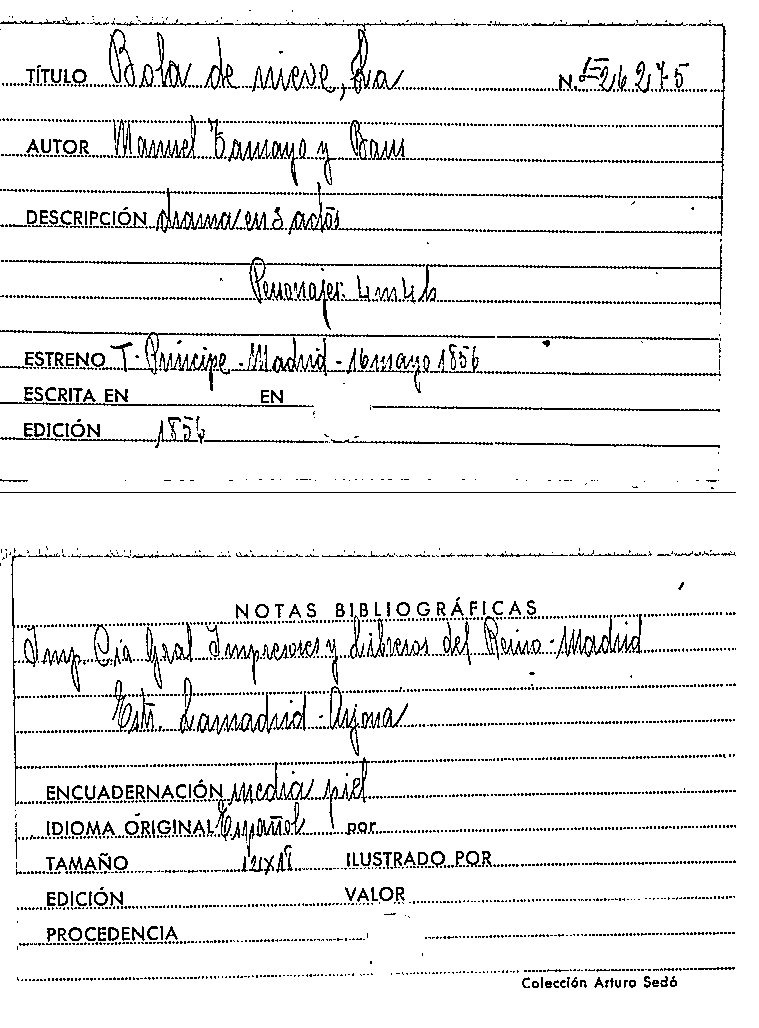 TÍTULO Bola de nieve, La N. E-26275
AUTOR Manuel Tamayo y Baus
DESCRIPCIÓN drama en 3 actos
Personajes: 4m 4h
ESTRENO T. Príncipe - Madrid - 16 mayo 1856
ESCRITA EN EN
EDICIÓN 1856
NOTAS BIBLIOGRÁFICAS
Imp. Cía Gral Impresores y Libreros del Reino - Madrid
Estr. Lamadrid - Arjona
ENCUADERNACIÓN media piel
IDIOMA ORIGINAL Español por
TAMAÑO ILUSTRADO POR
EDICIÓN VALOR
PROCEDENCIA
Colección Arturo Sedó